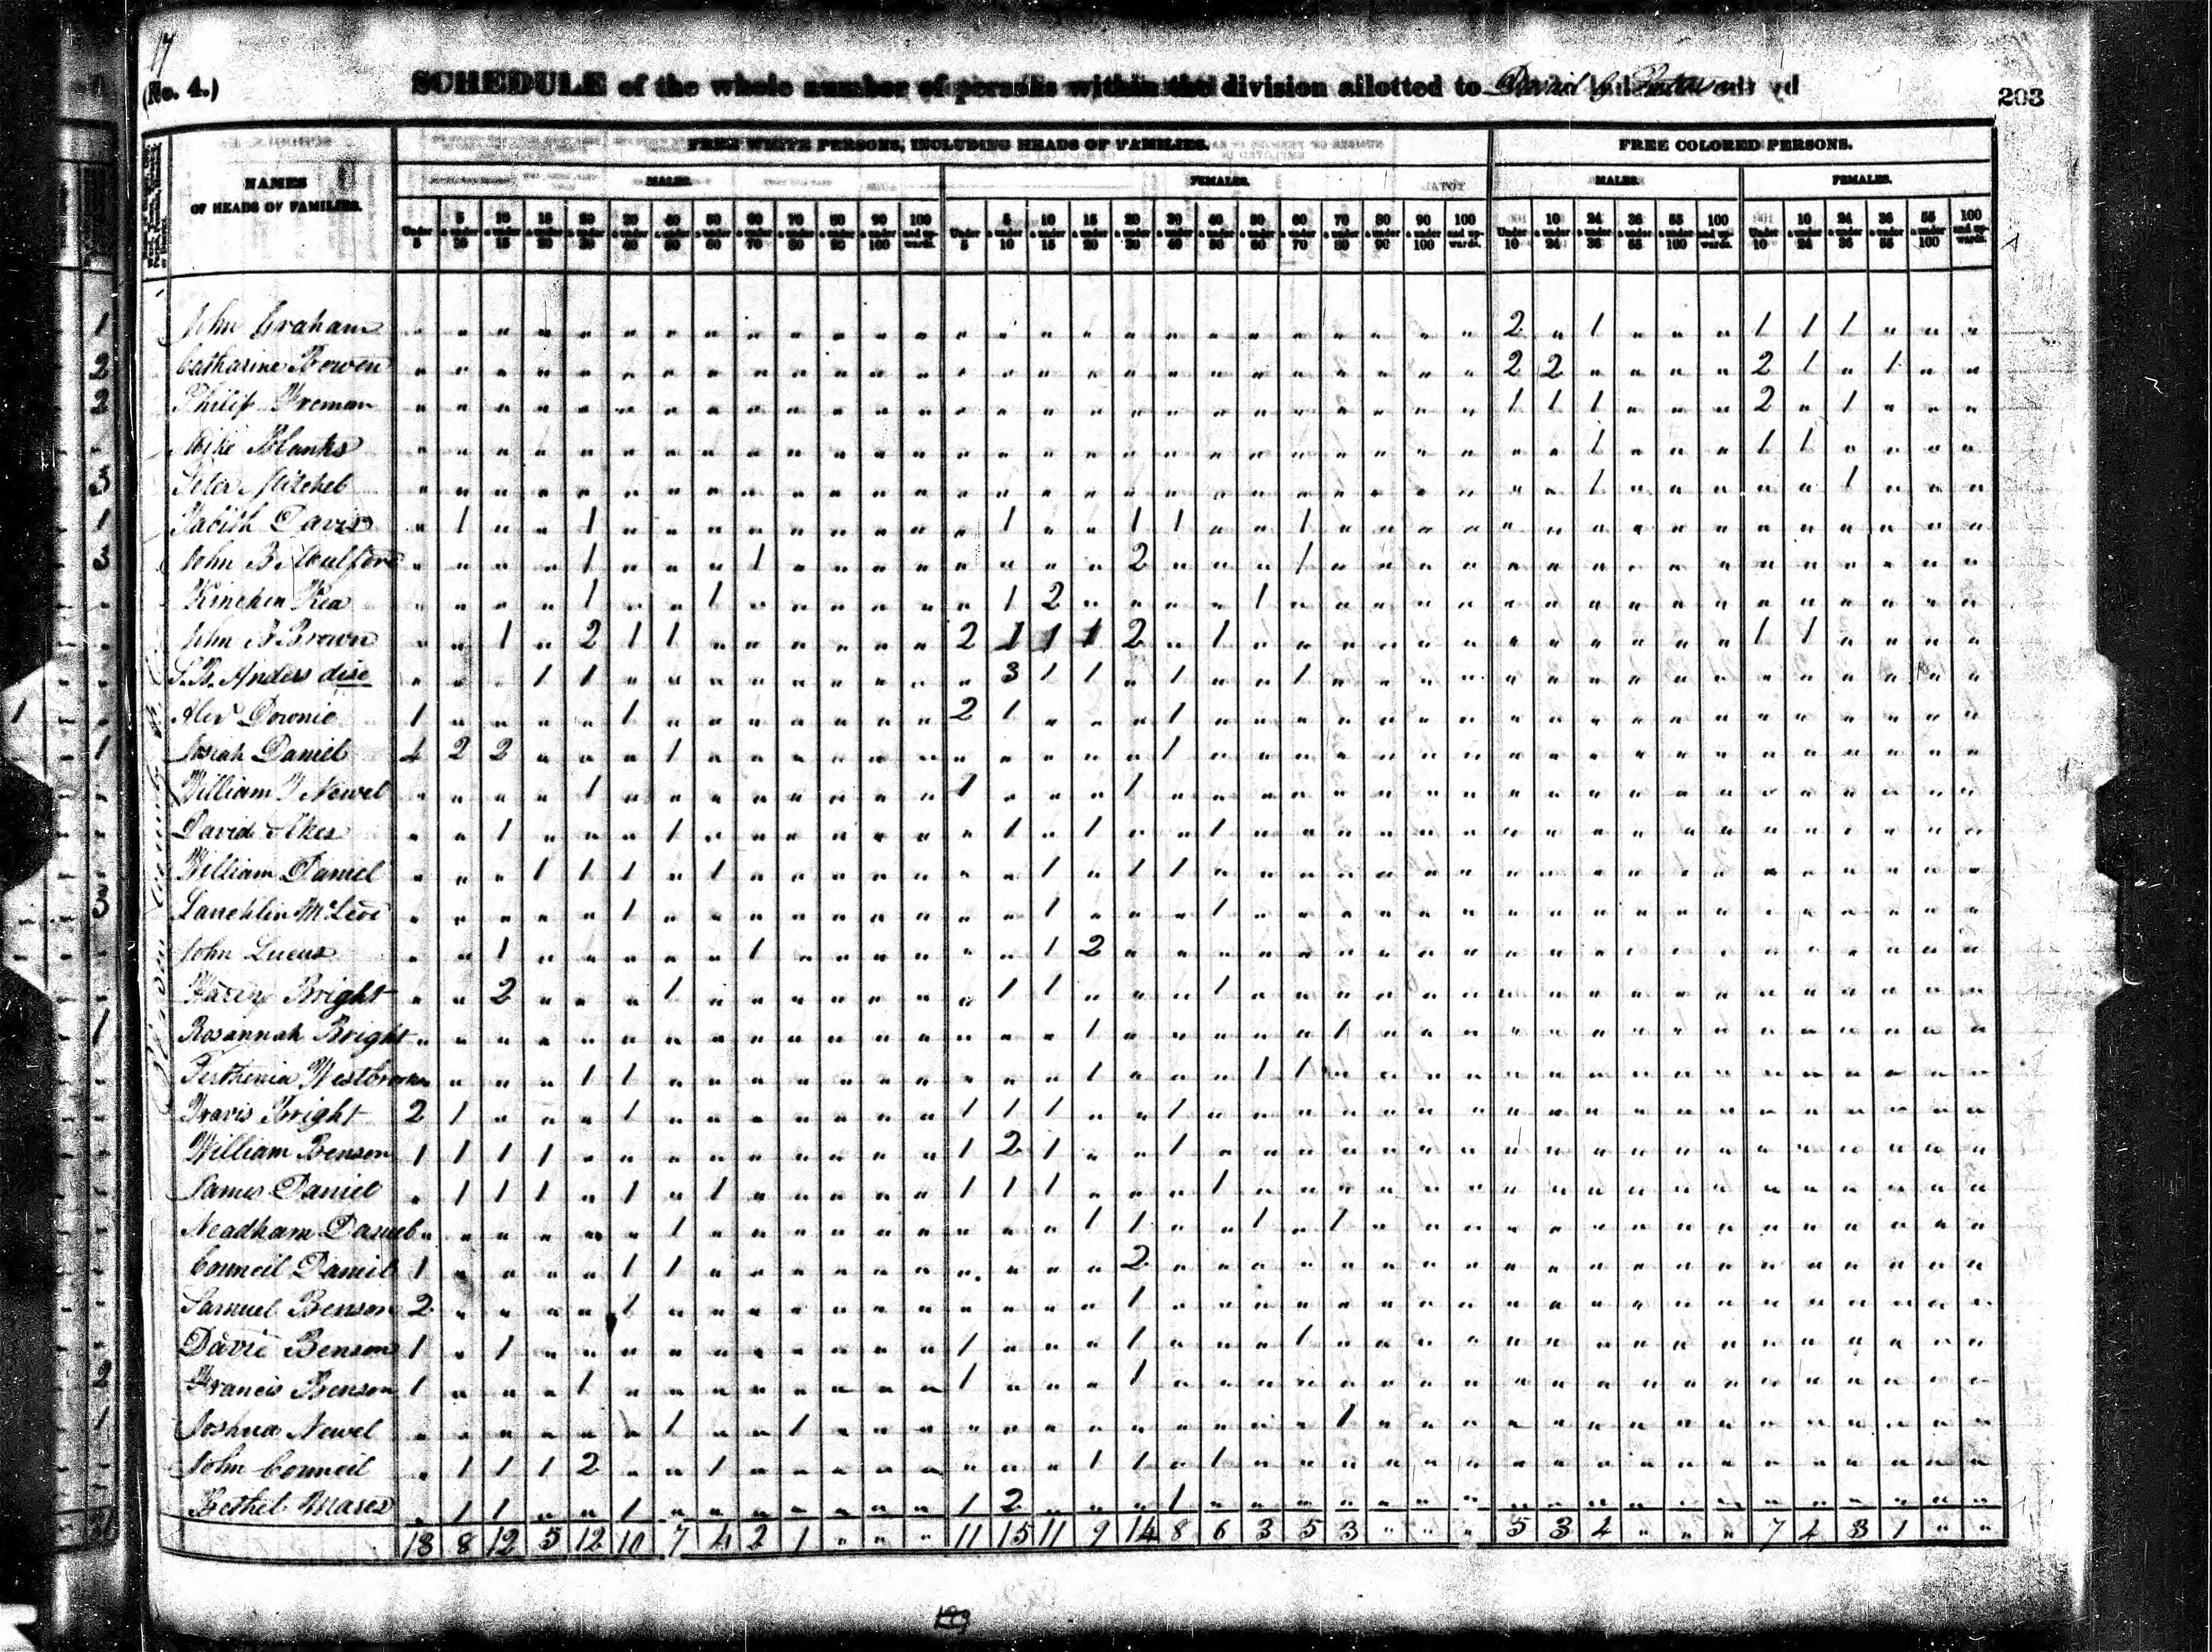 17
(No. 4.) SCHEDULE of the whole number of persons within the division allotted to David 203
FREE WHITE PERSONS, INCLUDING HEADS OF FAMILIES. FREE COLORED PERSONS.
NAMES OF HEADS OF FAMILIES. MALES. FEMALES. MALES. FEMALES.
Under 5 5 & under 10 10 & under 15 15 & under 20 20 & under 30 30 & under 40 40 & under 50 50 & under 60 60 & under 70 70 & under 80 80 & under 90 90 & under 100 100 and upwards. Under 5 5 & under 10 10 & under 15 15 & under 20 20 & under 30 30 & under 40 40 & under 50 50 & under 60 60 & under 70 70 & under 80 80 & under 90 90 & under 100 100 and upwards. Under 10 10 & under 24 24 & under 36 36 & under 55 55 & under 100 100 and upwards. Under 10 10 & under 24 24 & under 36 36 & under 55 55 & under 100 100 and upwards.
1 John Graham 2 1 1 1 1
2 Catharine Bowen 2 2 2 1 1
2 Philip Freman 1 1 1 2 1
Mike Blanks 1 1 1
3 Peter Mitchel 1 1
1 Tabith Davis 1 1 1 1 1 1
3 John B 1 1 2 1
Kinchen Kea 1 1 1 2 1
John B Brown 1 2 1 1 2 1 1 1 2 1 1 1
S.B. Anders 1 1 3 1 1 1 1
1 Alex Downie 1 1 2 1 1
1 Josiah Daniel 4 2 2 1 1
William J Newel 1 1 1
David Akes 1 1 1 1 1
William Daniel 1 1 1 1 1 1 1
3 Lauchlin McLeod 1 1 1
John Lucus 1 1 1 2
Bright 2 1 1 1 1
1 Rosannah Bright 1 1
Westbrook 1 1 1 1 1
Travis Bright 2 1 1 1 1 1 1
William Benson 1 1 1 1 1 2 1 1
James Daniel 1 1 1 1 1 1 1 1 1
Neadham Daniel 1 1 1 1 1
Council Daniel 1 1 1 2
Samuel Benson 2 1 1
David Benson 1 1 1 1 1
2 Francis Benson 1 1 1 1
1 Joshua Newel 1 1 1
John Council 1 1 1 2 1 1 1 1
Bethel Mares 1 1 1 1 2 1
13 8 12 5 12 10 7 4 2 1 11 15 11 9 14 8 6 3 5 3 5 3 4 7 4 3 1